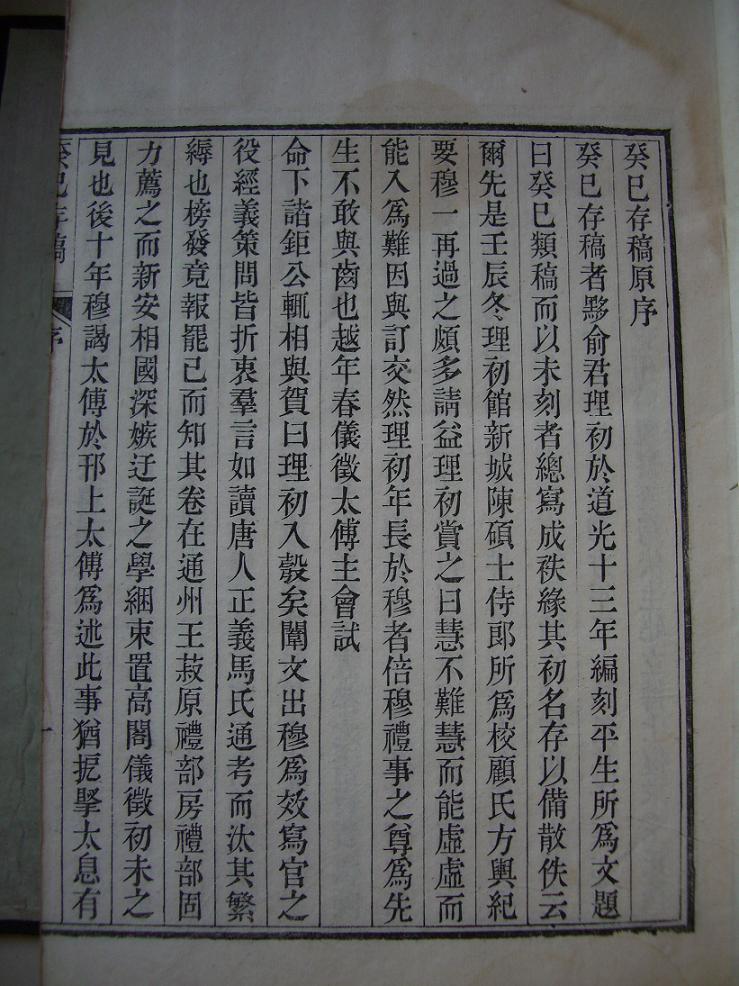 癸巳存稿原序
癸巳存稿者黟俞君理初於道光十三年編刻平生所爲文題
曰癸巳類稿而以未刻者總寫成秩緣其初名存以備散佚云
爾先是壬辰冬理初館新城陳碩士侍郎所爲校顧氏方輿紀
要穆一再過之頗多請益理初賞之曰慧不難慧而能虛虛而
能入爲難因與訂交然理初年長於穆者倍穆禮事之尊爲先
生不敢與齒也越年春儀徵太傅主會試
命下諸鉅公輒相與賀曰理初入彀矣闈文出穆爲效寫官之
役經義策問皆折衷羣言如讀唐人正義馬氏通考而汰其繁
縟也榜發竟報罷已而知其卷在通州王菽原禮部房禮部固
力薦之而新安相國深嫉迂誕之學綑束置高閣儀徵初未之
見也後十年穆謁太傅於邗上太傅爲述此事猶扼掔太息有
癸巳存稿
序
一